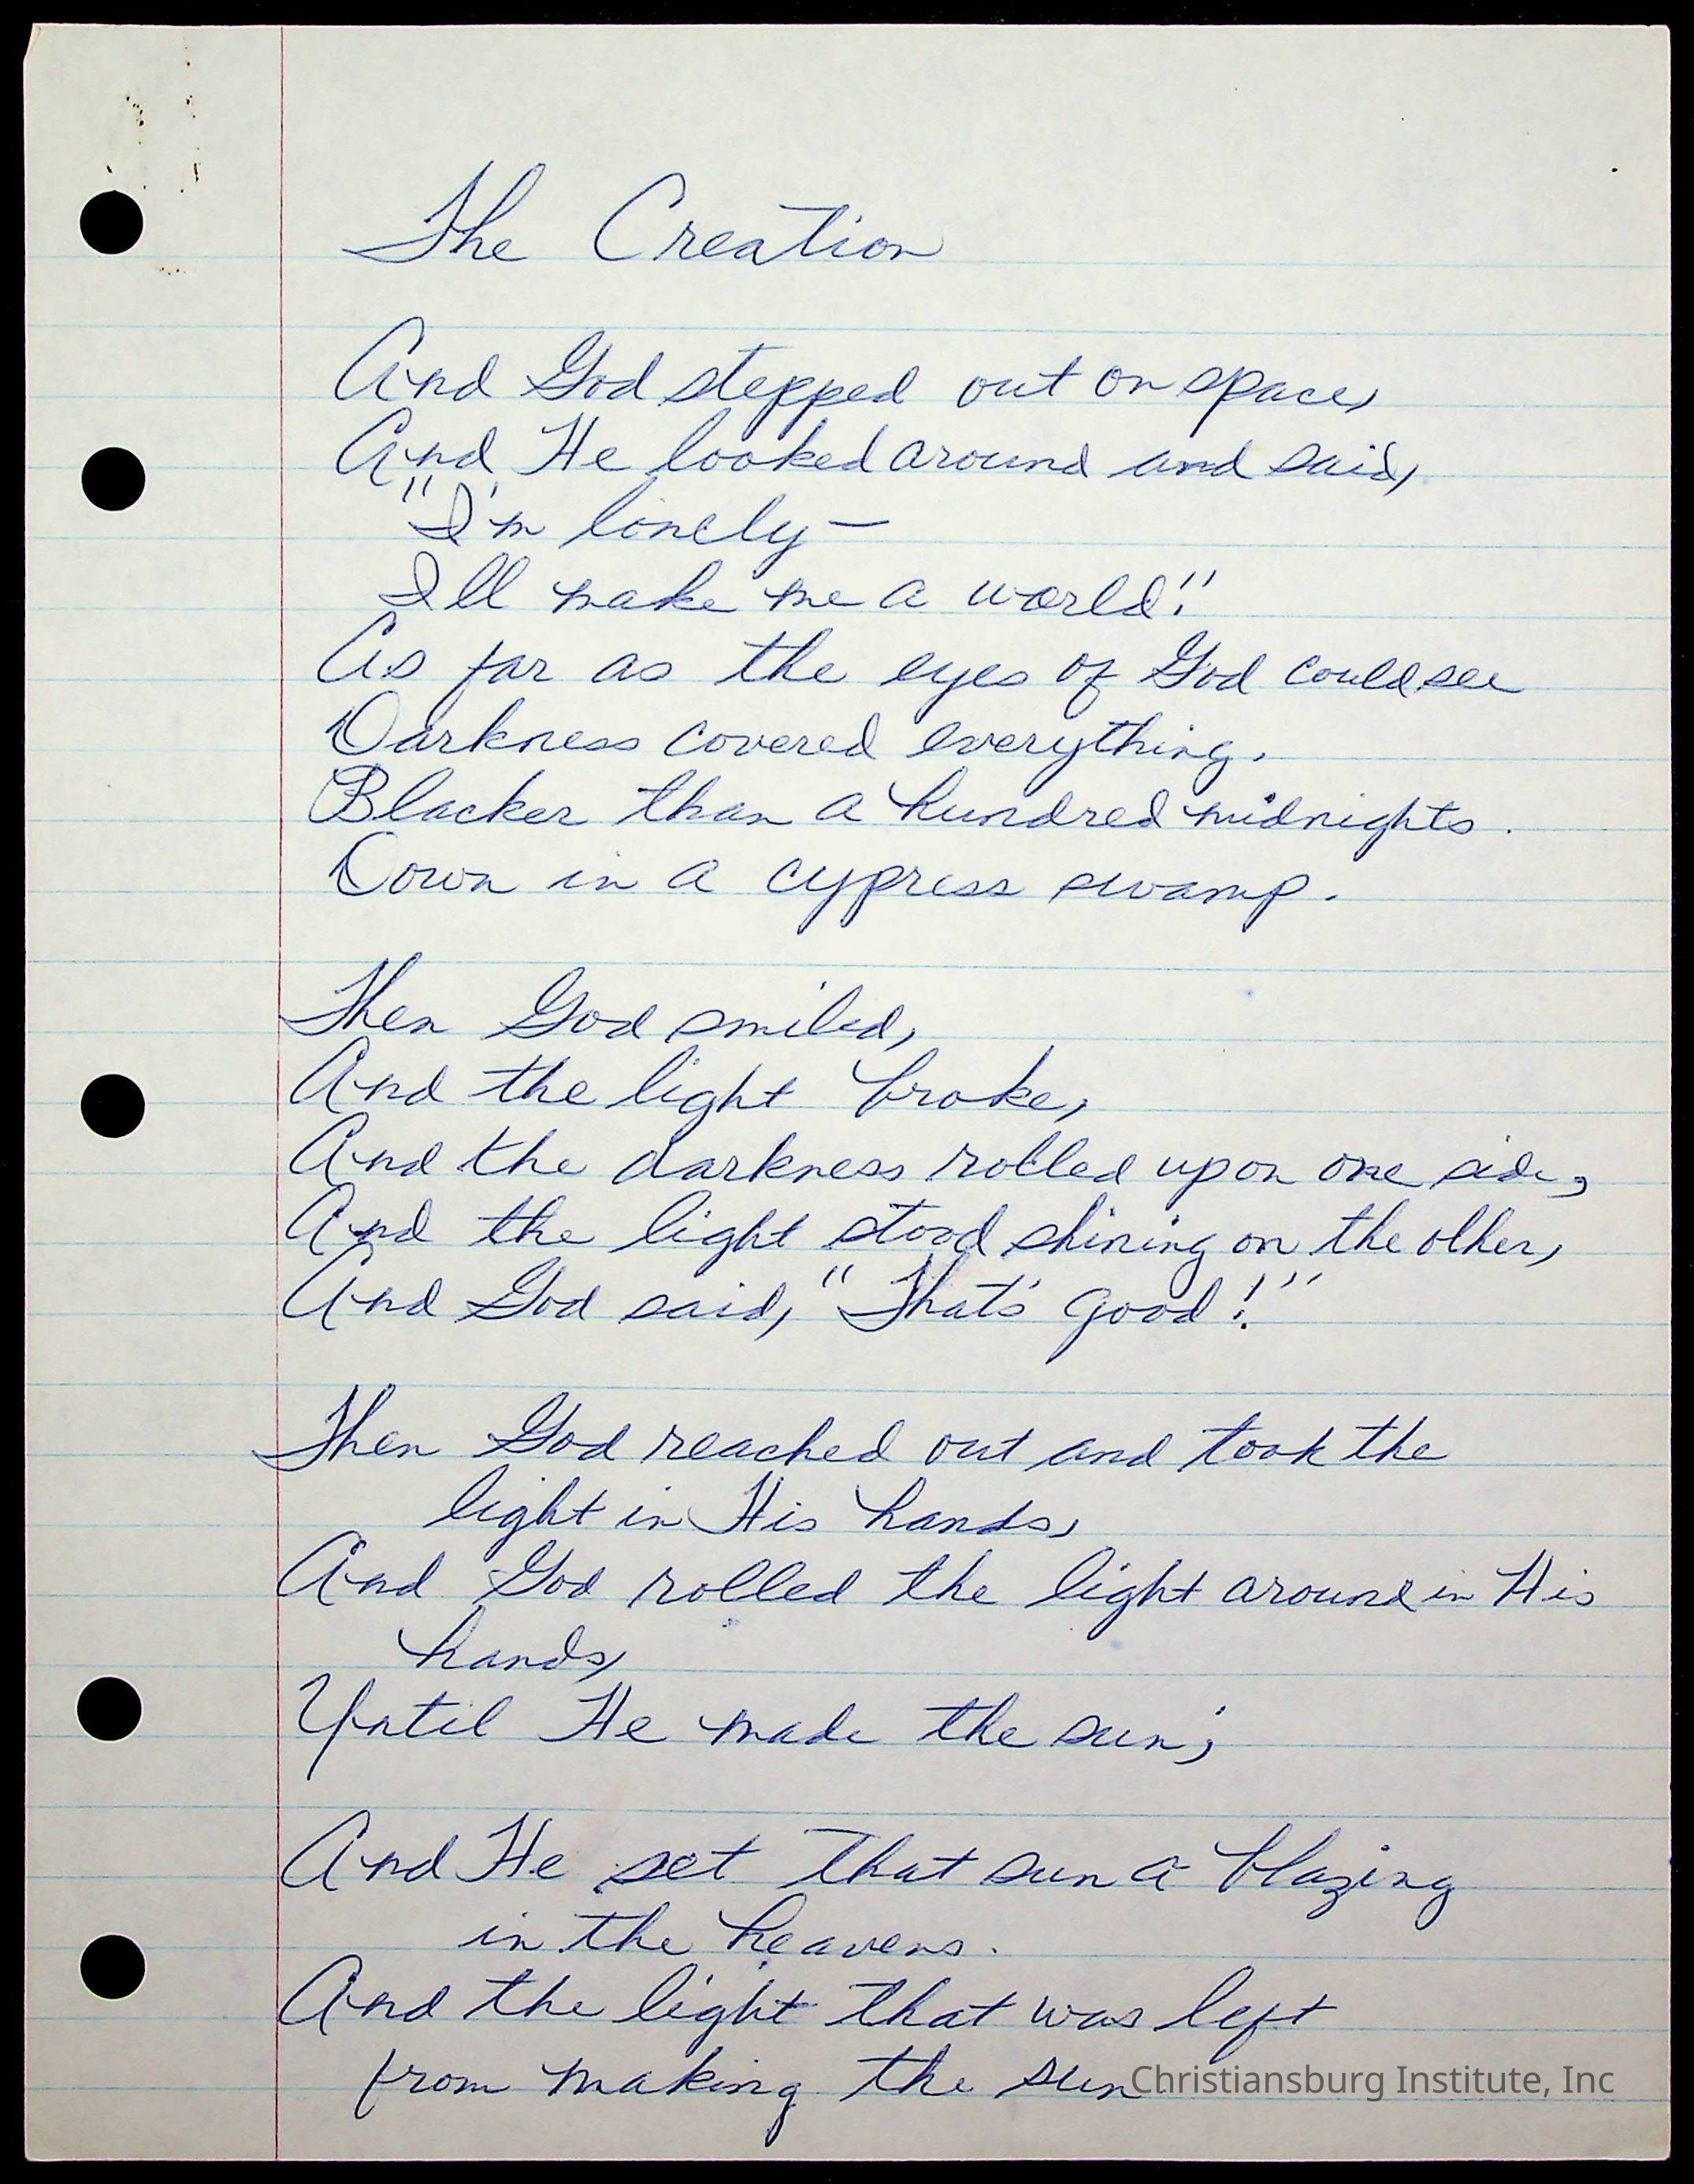 The Creation
And God stepped out on space,
And He looked around and said,
"I'm lonely—
I'll make me a world!"
As far as the eyes of God could see
Darkness covered everything,
Blacker than a hundred midnights.
Down in a cypress swamp.
Then God smiled,
And the light broke,
And the darkness rolled upon one side,
And the light stood shining on the other,
And God said, "That's good!"
Then God reached out and took the
light in His hands,
And God rolled the light around in His
hands,
Until He made the sun;
And He set that sun a blazing
in the heavens.
And the light that was left
from making the sun
Christiansburg Institute, Inc